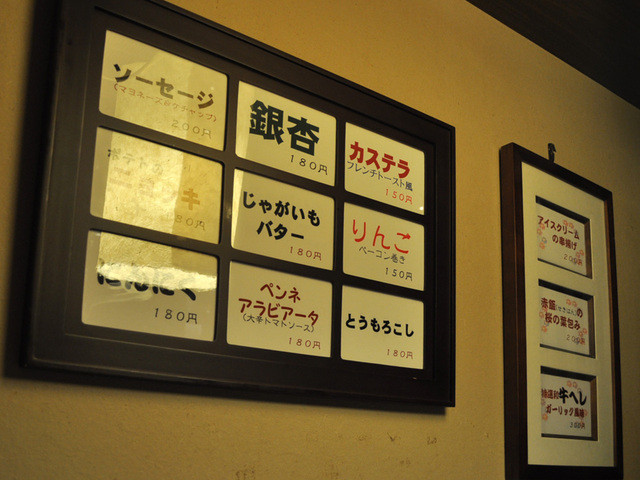 ソーセージ
(マヨネーズ or ケチャップ)
200円
銀杏
180円
カステラ
フレンチトースト風
150円
キ
180円
じゃがいも
バター
180円
りんご
ベーコン巻き
150円
にんにく
180円
ペンネ
アラビアータ
(大辛トマトソース)
180円
とうもろこし
180円
アイスクリーム
の串揚げ
200円
赤飯の
桜の葉包み
200円
牛ヘレ
ガーリック風味
300円